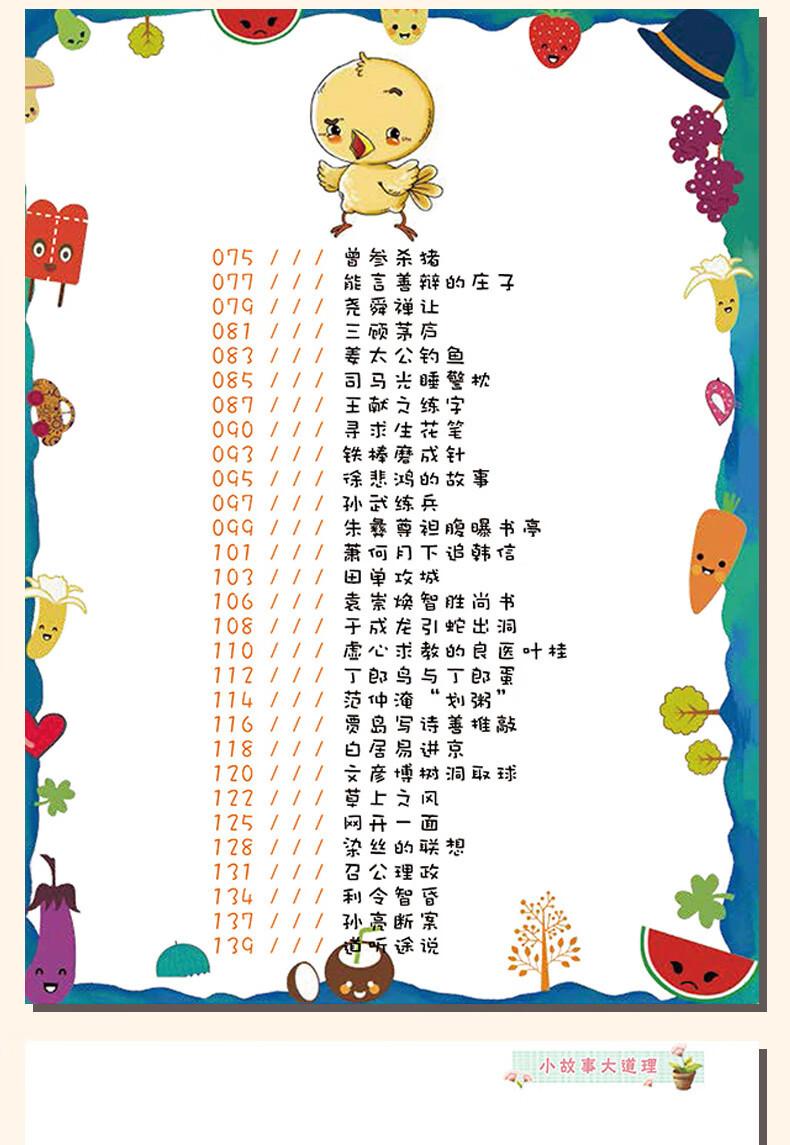 075 / / / 曾参杀猪
077 / / / 能言善辩的庄子
079 / / / 尧舜禅让
081 / / / 三顾茅庐
083 / / / 姜太公钓鱼
085 / / / 司马光睡警枕
087 / / / 王献之练字
090 / / / 寻求生花笔
093 / / / 铁棒磨成针
095 / / / 徐悲鸿的故事
097 / / / 孙武练兵
099 / / / 朱彝尊袒腹曝书亭
101 / / / 萧何月下追韩信
103 / / / 田单攻城
106 / / / 袁崇焕智胜尚书
108 / / / 于成龙引蛇出洞
110 / / / 虚心求教的良医叶桂
112 / / / 丁郎鸟与丁郎蛋
114 / / / 范仲淹“划粥”
116 / / / 贾岛写诗善推敲
118 / / / 白居易进京
120 / / / 文彦博树洞取球
122 / / / 草上之风
125 / / / 网开一面
128 / / / 染丝的联想
131 / / / 召公理政
134 / / / 利令智昏
137 / / / 孙亮断案
139 / / / 道听途说
小故事大道理